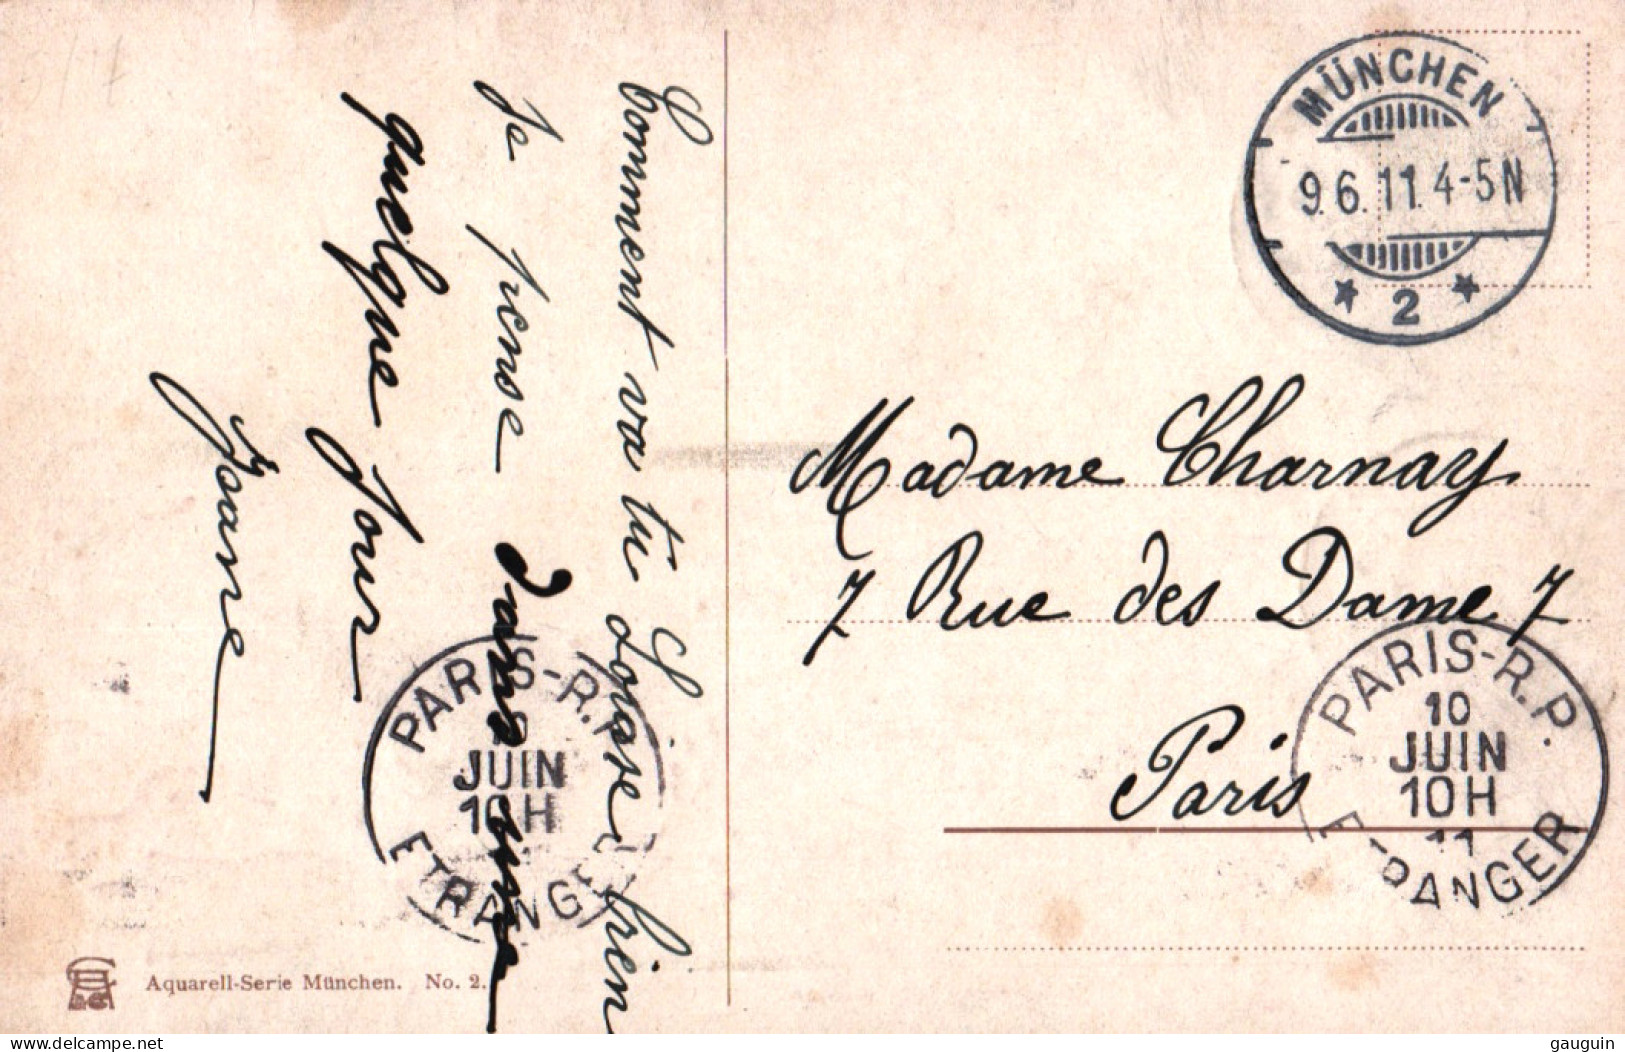 Comment va tu Loaise Bien
Je pense dans une
quelque jour
Jeane
MÜNCHEN
9.6.11.4-5N
* 2 *
Madame Charnay
7 Rue des Dame 7
Paris
PARIS-R.P.
10
JUIN
10H
11
ETRANGER
PARIS-R.P.
JUIN
10H
ETRANGER
Aquarell-Serie München. No. 2.
www.delcampe.net
gauguin